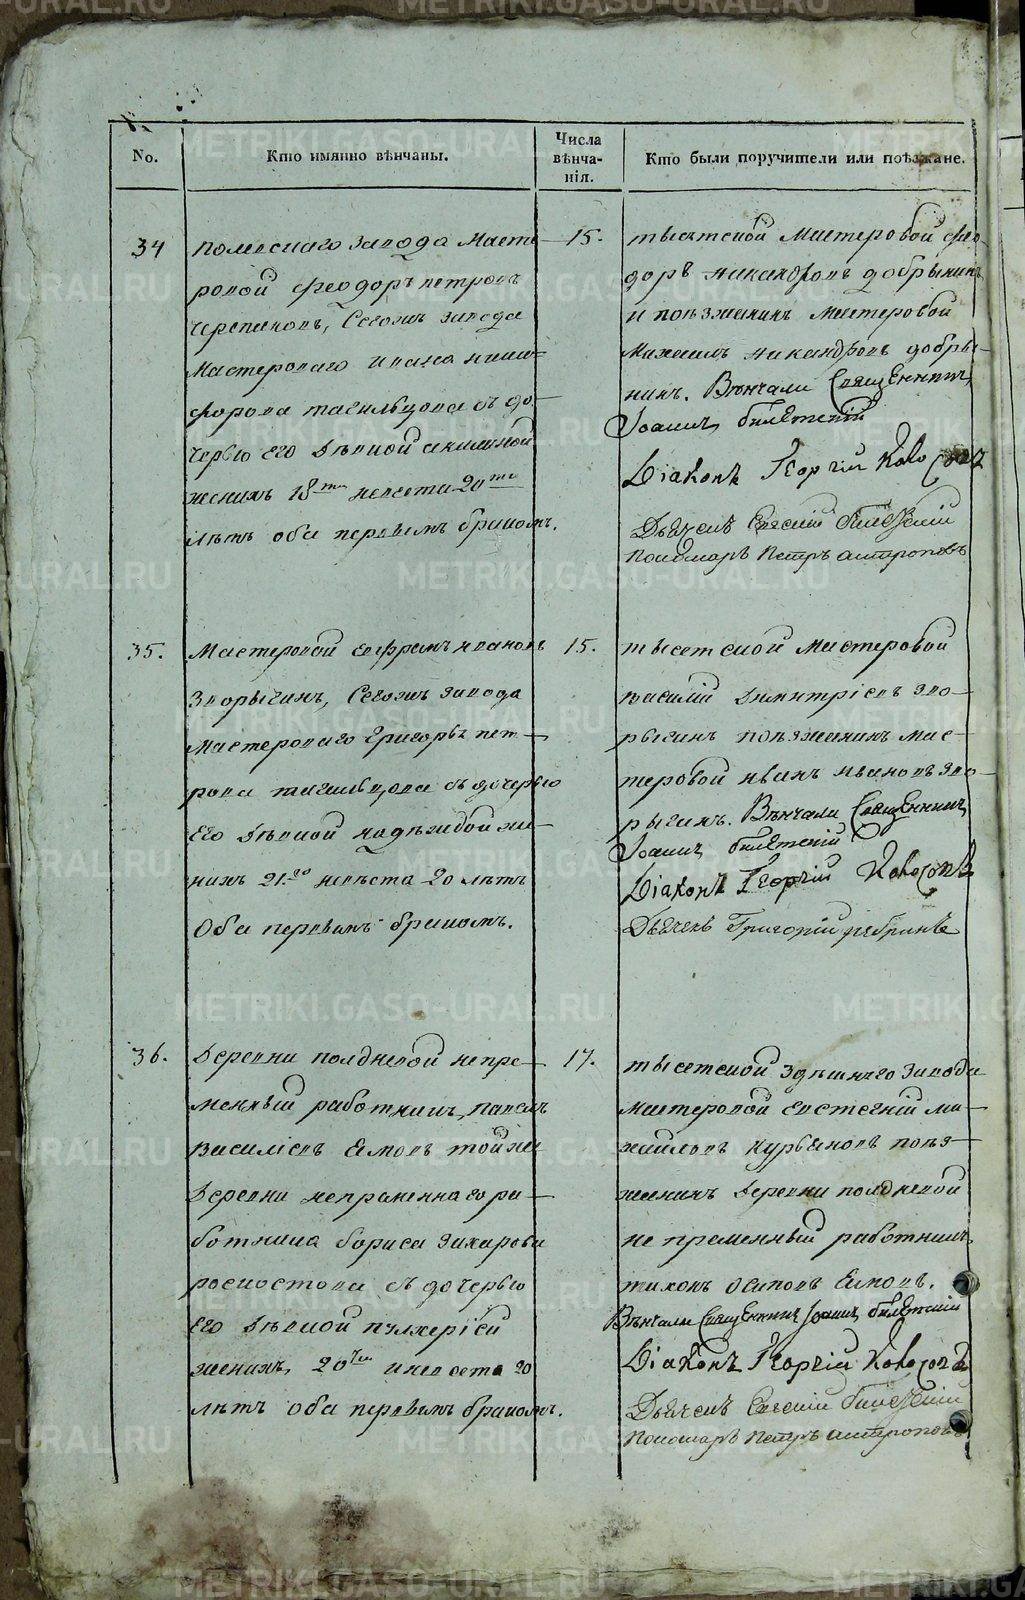 No.
Кто имянно вѣнчаны.
Числа
вѣнча-
нія.
Кто были поручители или поѣзжане.
34
Полевскаго завода Масте-
ровой Феодоръ Петровъ
Черепановъ, Сегожъ завода
Мастероваго Ивана Ники-
форова Тагильцова съ до-
черью Его Дѣвицой Акилиной
женихъ 18ти невеста 20ти
лѣтъ оба первымъ бракомъ.
15.
тысятской Мастеровой Фео-
доръ Никандровъ Добрынинъ
и поѣзжанинъ Мастеровой
Михаилъ Никандровъ Добры-
нинъ. Вѣнчали Священникъ
Іоаннъ
Діаконъ Георгій Колосовъ
Дьячекъ
Пономарь Петръ Антроповъ
35.
Мастеровой Ефремъ Ивановъ
Зворыгинъ, Сегожъ завода
Мастероваго Григорья Пет-
рова Тагильцова съ дочерью
Его Дѣвицой Надѣждой же-
нихъ 21го невѣста 20 лѣтъ
Оба первымъ бракомъ.
15.
тысетской Мастеровой
Василій Димитріевъ Зво-
рыгинъ поѣзжанинъ Мас-
теровой Иванъ Ивановъ Зво-
рыгинъ. Вѣнчали Священникъ
Іоаннъ
Діаконъ Георгій Колосовъ
Дьячекъ Григорій
36.
Деревни Полдневой непре-
менный работникъ, Павелъ
Василіевъ Елховъ той же
Деревни непременнаго ра-
ботника Бориса Захарова
Росностова съ дочерью
Его Дѣвицой Пулхеріей
женихъ, 20ти и невеста 20
лѣтъ оба первымъ бракомъ.
17.
тысетской здѣшнего завода
Мастеровой Евстегній Ми-
хайловъ Курбановъ поѣз-
жанинъ Деревни Полдневой
непременный работникъ,
Тихонъ Осиповъ Елховъ.
Вѣнчали Священникъ Іоаннъ
Діаконъ Георгій Колосовъ
Дьячекъ
Пономарь Петръ Антроповъ
METRIKI.GASO-URAL.RU